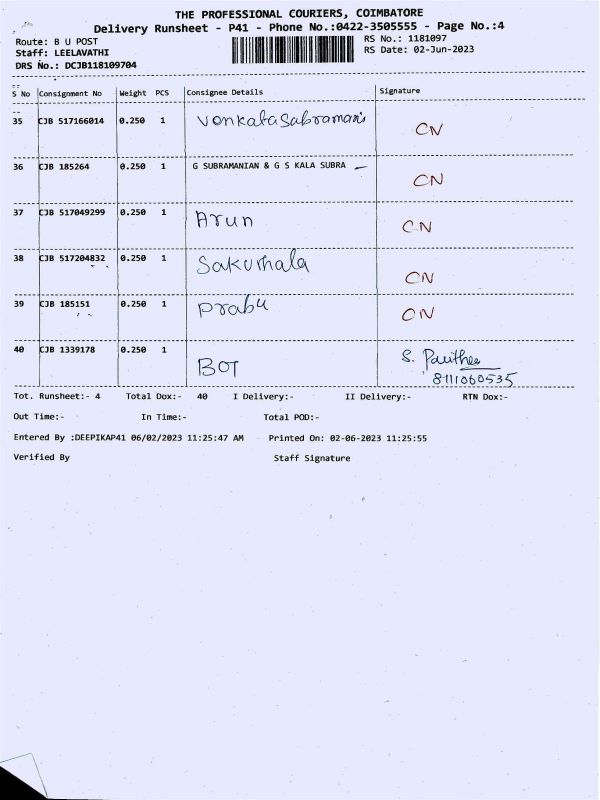 THE PROFESSIONAL COURIERS, COIMBATORE
Delivery Runsheet - P41 - Phone No.:0422-3505555 - Page No.:4
Route: B U POST RS No.: 1181097
Staff: LEELAVATHI RS Date: 02-Jun-2023
DRS No.: DCJB118109704
S No Consignment No Weight PCS Consignee Details Signature
35 CJB 517166014 0.250 1 Venkatasabramani CN
36 CJB 185264 0.250 1 G SUBRAMANIAN & G S KALA SUBRA CN
37 CJB 517049299 0.250 1 Arun CN
38 CJB 517204832 0.250 1 CN
39 CJB 185151 0.250 1 Prabu CN
40 CJB 1339178 0.250 1 BOT S.
8111060535
Tot. Runsheet:- 4 Total Dox:- 40 I Delivery:- II Delivery:- RTN Dox:-
Out Time:- In Time:- Total POD:-
Entered By :DEEPIKAP41 06/02/2023 11:25:47 AM Printed On: 02-06-2023 11:25:55
Verified By Staff Signature